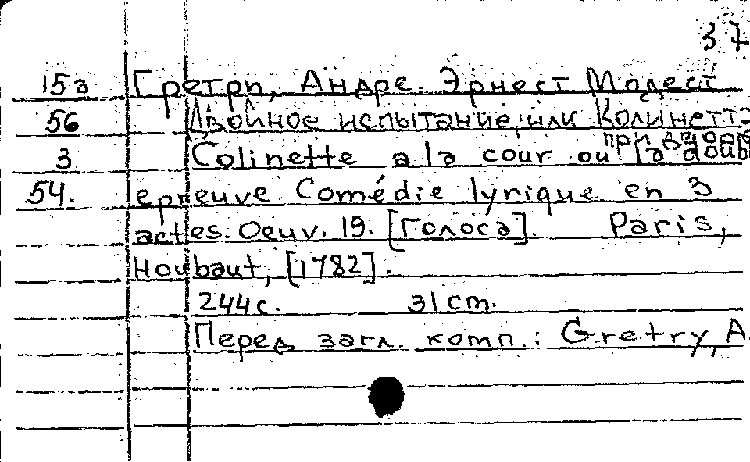 37
15а Гретри, Андре Эрнест Модест
56 Двойное испытание, или Колинетт-
при дворе
3 Colinette a la cour ou la doub
54. epreuve Comédie lyrique en 3
actes. Oeuv. 19. [Голоса]. Paris,
Houbaut, [1782].
244с. 31 cm.
Перед загл. комп.: Gretry, A